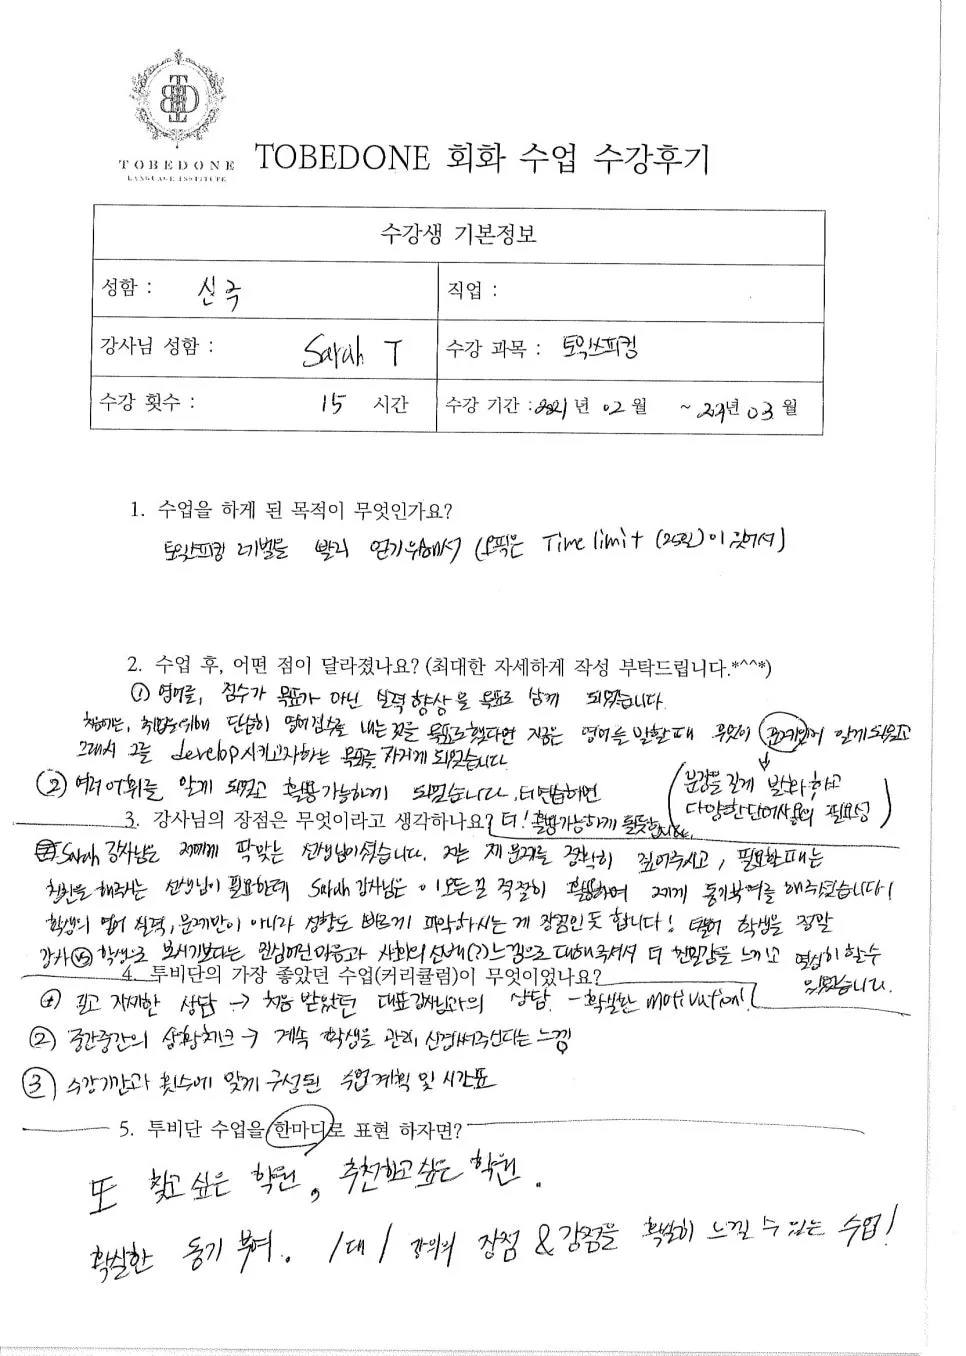 TOBEDONE
LANGUAGE INSTITUTE
TOBEDONE 회화 수업 수강후기
수강생 기본정보
성함 : 신국
직업 :
강사님 성함 : Sarah T
수강 과목 : 토익스피킹
수강 횟수 : 15 시간
수강 기간 : 2021년 02월 ~ 2021년 03월
1. 수업을 하게 된 목적이 무엇인가요?
토익스피킹 레벨을 빨리 얻기위해서 (오픽은 Time limit (25일)이 있어서)
2. 수업 후, 어떤 점이 달라졌나요? (최대한 자세하게 작성 부탁드립니다.*^^*)
① 영어를, 점수가 목표가 아닌 실력향상을 목표로 삼게 되었습니다.
처음에는, 취업을 위해 단순히 영어점수를 내는 것을 목표로 했다면 지금은 영어를 말할 때 무엇이 문제인지 알게 되었고
그래서 그를 develop시키고자하는 목표를 가지게 되었습니다.
② 여러 어휘를 알게 되었고 활용가능하게 되었습니다. 더 연습하면
더! 활용가능하게 될듯합니다.
(문장을 길게 발화하고
다양한 단어사용의 필요성)
3. 강사님의 장점은 무엇이라고 생각하나요?
Sarah 강사님은 저에게 딱맞는 선생님이셨습니다. 저는 제 문제를 정확히 짚어주시고, 필요할때는
칭찬을 해주시는 선생님이 필요한데 Sarah 강사님은 이 모든걸 적절히 활용하여 제게 동기부여를 해주셨습니다!
학생의 영어 실력, 문제만이 아니라 성향도 빠르게 파악하시는 게 장점인듯 합니다! 학생을 정말
강사 vs 학생으로 보시기보다는 관심어린 마음과 사회의 선배(?)느낌으로 대해주셔서 더 친밀감을 느끼고 열심히 할수
있었습니다.
4. 투비단의 가장 좋았던 수업(커리큘럼)이 무엇이었나요?
① 길고 자세한 상담 → 처음 받았던 대표강사님과의 상담 - 확실한 motivation!
② 중간중간의 상황체크 → 계속 학생을 관리, 신경써주신다는 느낌
③ 수강기간과 횟수에 맞게 구성된 수업계획 및 시간표
5. 투비단 수업을 한마디로 표현 하자면?
또 찾고 싶은 학원, 추천하고 싶은 학원.
확실한 동기 부여. 1대1 강의의 장점 & 강점을 확실히 느낄 수 있는 수업!